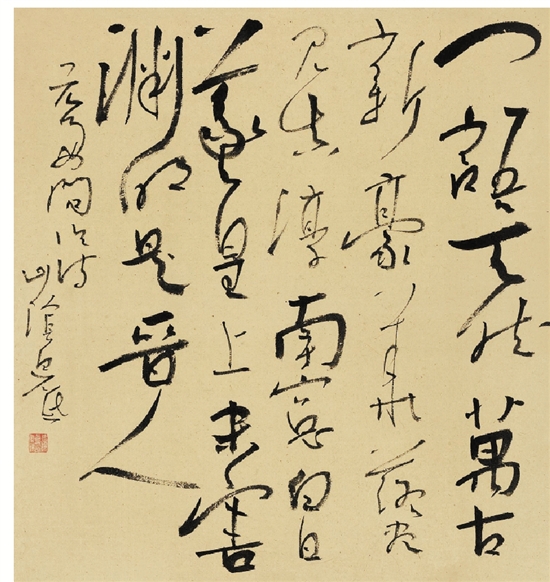 一語天然萬古
新豪華落盡
見真淳南窓白日
羲皇上未害
淵明是晉人
元好問論詩
山陰